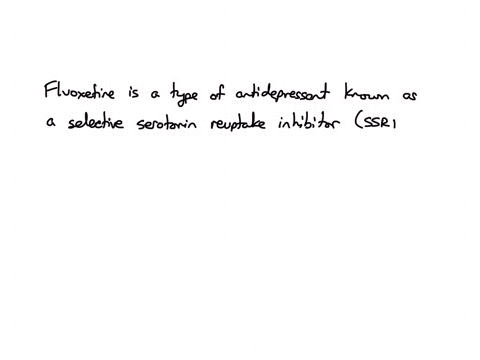 Fluoxetine is a type of antidepressant known as
a selective serotonin reuptake inhibitor (SSRI